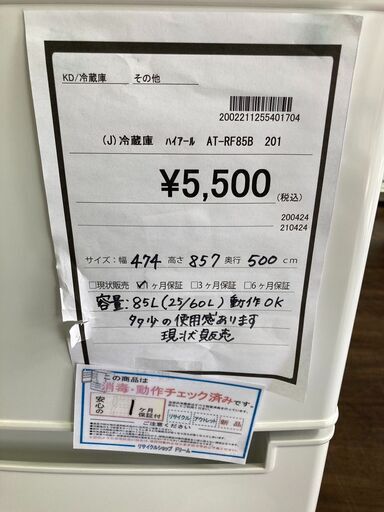 KD/冷蔵庫 その他
2002211255401704
(J)冷蔵庫 ハイアール AT-RF85B 201
¥5,500
(税込)
200424
210424
サイズ:幅 474 高さ 857 奥行 500 cm
□現状販売 ☑1ヶ月保証 □3ヶ月保証 □6ヶ月保証
容量:85L(25/60L)動作OK
多少の使用感あります
現状販売
この商品は
消毒・動作チェック済みです。
安心の 1 ケ月保証付
リサイクル アウトレット 新品
ご注意ください
リサイクルショップ ドリーム